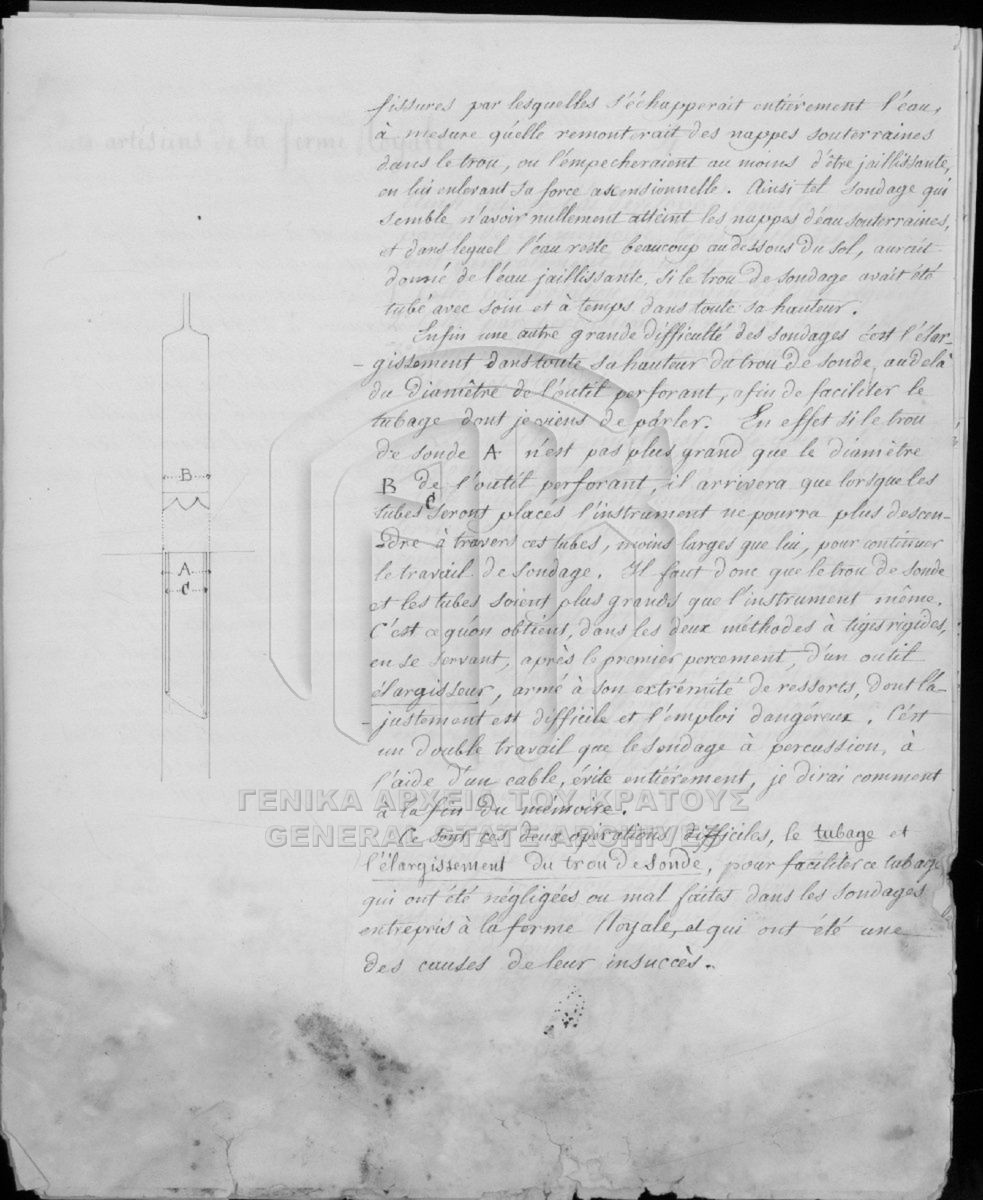 fissures par lesquelles s'échapperait entièrement l'eau,
à mesure qu'elle remonterait des nappes souterraines
dans le trou, ou l'empecheraient au moins d'être jaillissante,
en lui enlevant sa force ascensionnelle. Ainsi tel sondage qui
semble n'avoir nullement atteint les nappes d'eau souterraines,
et dans lequel l'eau reste beaucoup au dessous du sol, aurait
donné de l'eau jaillissante, si le trou de sondage avait été
tubé avec soin et à temps dans toute sa hauteur.
Enfin une autre grande difficulté des sondages c'est l'élar-
-gissement dans toute sa hauteur du trou de sonde, au delà
du diamêtre de l'outil perforant, afin de faciliter le
tubage dont je viens de parler. En effet si le trou
de sonde A n'est pas plus grand que le diamêtre
B de l'outil perforant, il arrivera que lorsque les
tubes C seront placés l'instrument ne pourra plus descen-
-dre à travers ces tubes, moins larges que lui, pour continuer
le travail de sondage. Il faut donc que le trou de sonde
et les tubes soient plus grands que l'instrument même.
C'est ce qu'on obtient, dans les deux méthodes à tiges rigides,
en se servant, après le premier percement, d'un outil
élargisseur, armé à son extrémité de ressorts, dont l'a-
-justement est difficile et l'emploi dangéreux. C'est
un double travail que le sondage à percussion, à
l'aide d'un cable, évite entièrement, je dirai comment
à la fin du mémoire.
Ce sont ces deux opérations difficiles, le tubage et
l'élargissement du trou de sonde, pour faciliter ce tubage
qui ont été négligées ou mal faites dans les sondages
entrepris à la ferme Royale, et qui ont été une
des causes de leur insuccès.
B
A
C
ΓΕΝΙΚΑ ΑΡΧΕΙΑ ΤΟΥ ΚΡΑΤΟΥΣ
GENERAL STATE ARCHIVES